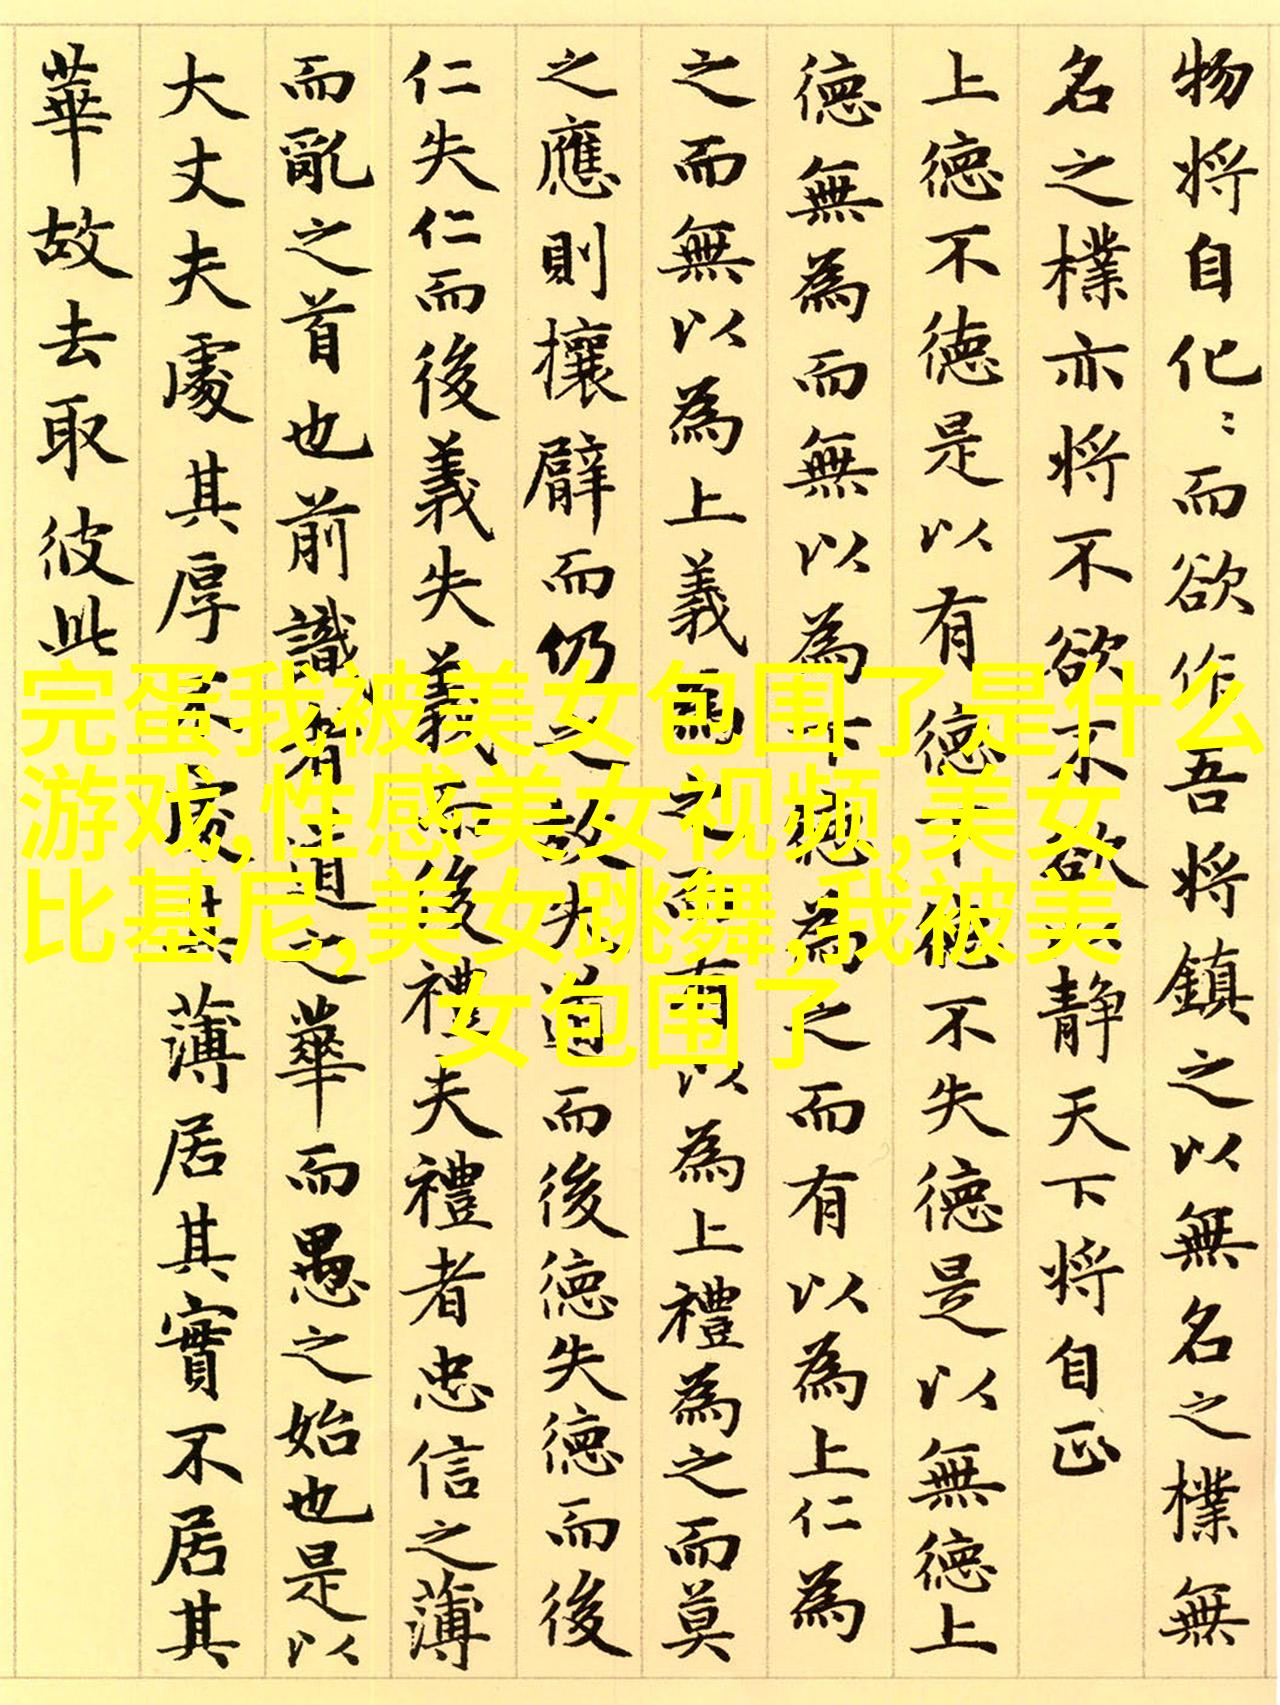 物将自化〻而欲作吾将鎮之以無名之樸無
名之樸亦将不欲不欲以静天下将自正
上德不德是以有德下德不失德是以無德上
德無為而無以為下德為之而有以為上仁為
之而無以為上義為之而有以為上禮為之而莫
之應則攘臂而仍之故失道而後德失德而後
仁失仁而後義失義而後禮夫禮者忠信之薄
而亂之首也前識者道之華而愚之始也是以
大丈夫處其厚不處其薄居其實不居其
華故去取彼此
完蛋我被美女包围了是什么
游戏,性感美女视频,美女
比基尼,美女跳舞,我被美
女包围了